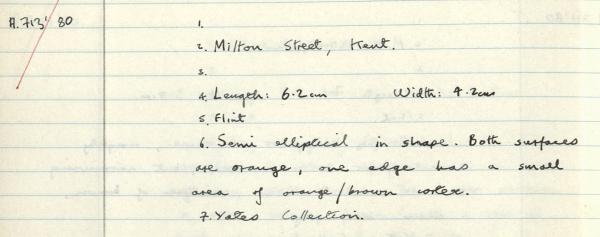 A.713' 80
1.
2. Milton Street, Kent.
3.
4. Length: 6.2cm Width: 4.2cm
5. Flint
6. Semi elliptical in shape. Both surfaces
are orange, one edge has a small
area of orange/brown cortex.
7. Yates Collection.